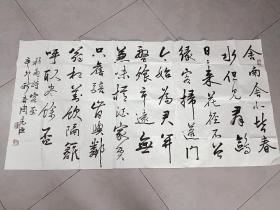 舍南舍北皆春
水但見群鷗
日日來花徑不曾
緣客掃蓬門
今始為君開
盤飧市遠無
兼味樽酒家貧
只舊醅肯與鄰
翁相對飲隔籬
呼取盡餘杯
杜甫詩客至
辛卯秋月